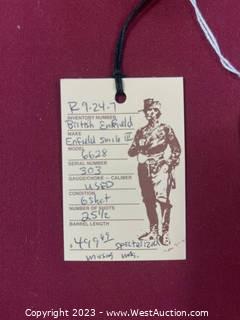 R 9-24-7
INVENTORY NUMBER
British Enfield
MAKE
Enfield
MODEL
6628
SERIAL NUMBER
303
GAUGE/CHOKE - CALIBER
USED
CONDITION
6 shot
NUMBER OF SHOTS
25 1/2
BARREL LENGTH
$499
© 2023 - www.WestAuction.com